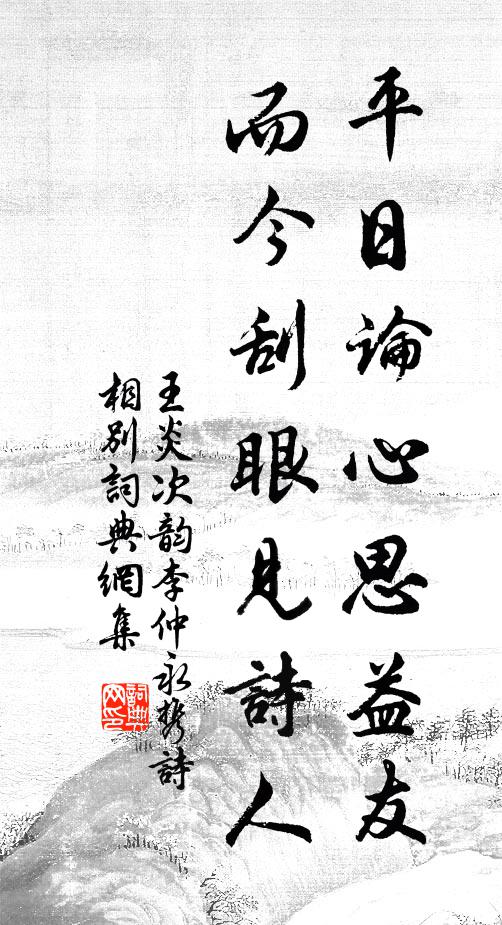 平日論心思益友
而今刮眼見詩人
王炎次韵李仲永携詩
相別詞典網集
詞典網印